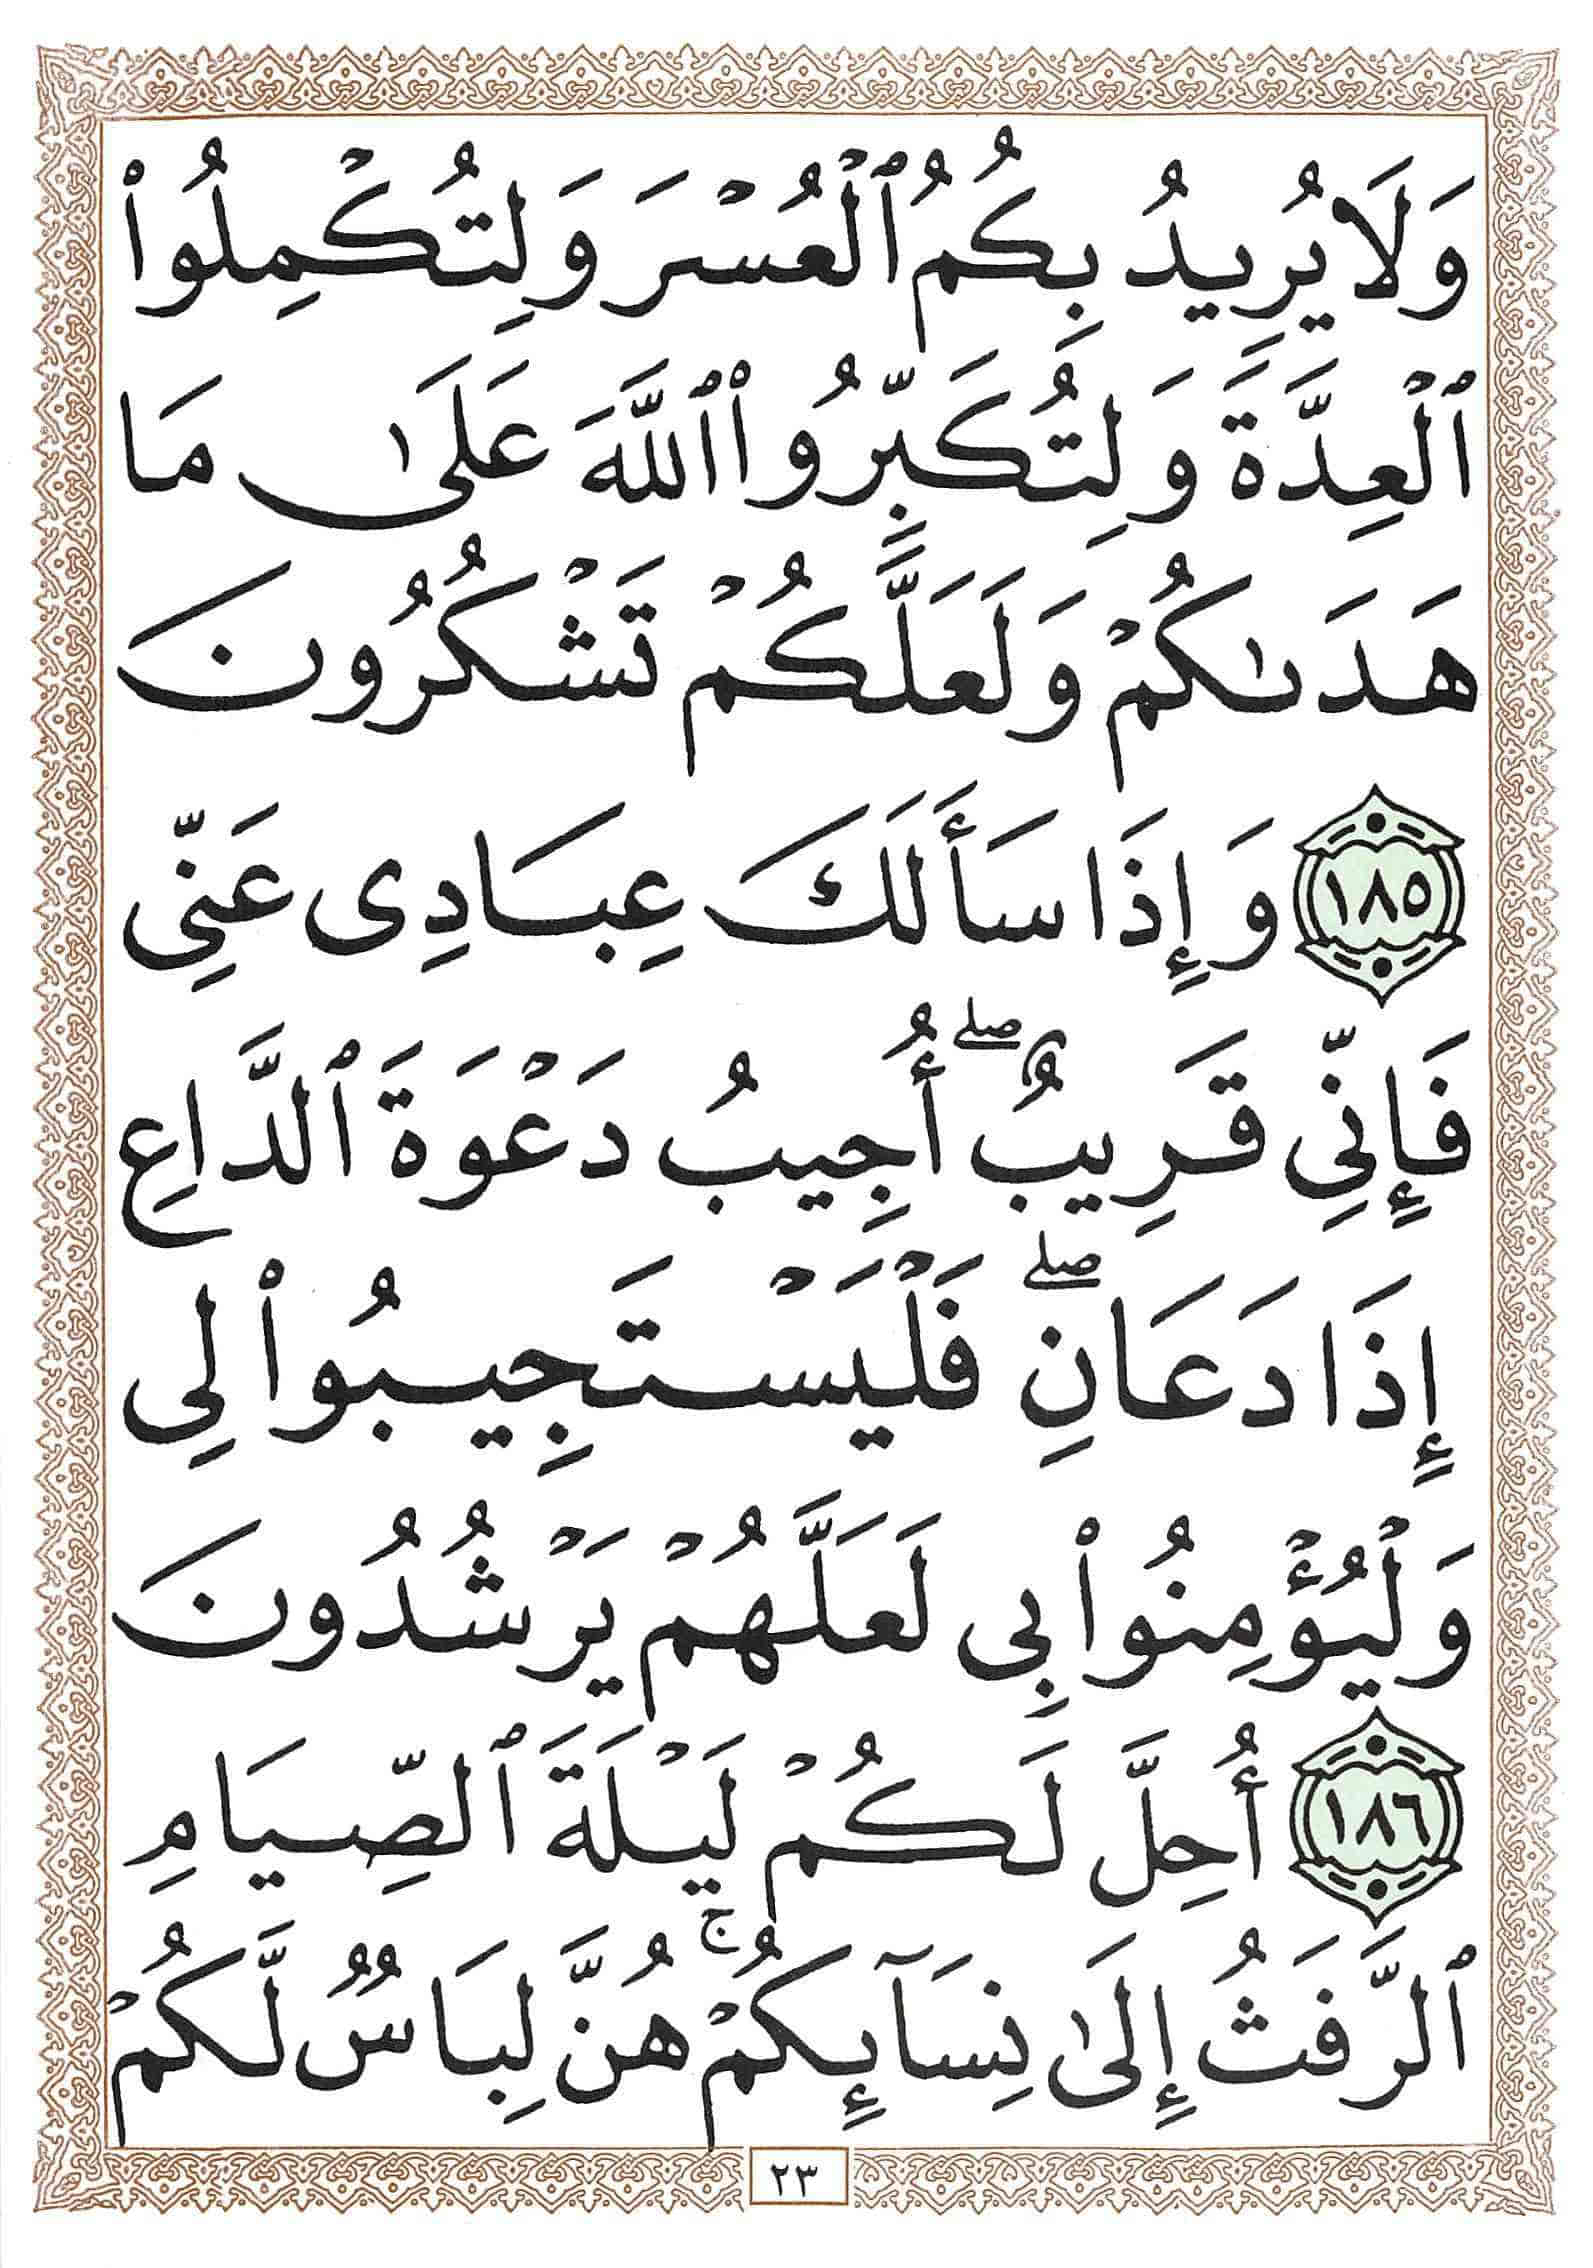 وَلَا يُرِيدُ بِكُمُ ٱلْعُسْرَ وَلِتُكْمِلُوا۟
ٱلْعِدَّةَ وَلِتُكَبِّرُوا۟ ٱللَّهَ عَلَىٰ مَا
هَدَىٰكُمْ وَلَعَلَّكُمْ تَشْكُرُونَ
١٨٥ وَإِذَا سَأَلَكَ عِبَادِى عَنِّى
فَإِنِّى قَرِيبٌ ۖ أُجِيبُ دَعْوَةَ ٱلدَّاعِ
إِذَا دَعَانِ ۖ فَلْيَسْتَجِيبُوا۟ لِى
وَلْيُؤْمِنُوا۟ بِى لَعَلَّهُمْ يَرْشُدُونَ
١٨٦ أُحِلَّ لَكُمْ لَيْلَةَ ٱلصِّيَامِ
ٱلرَّفَثُ إِلَىٰ نِسَآئِكُمْ ۚ هُنَّ لِبَاسٌ لَّكُمْ
٢٣